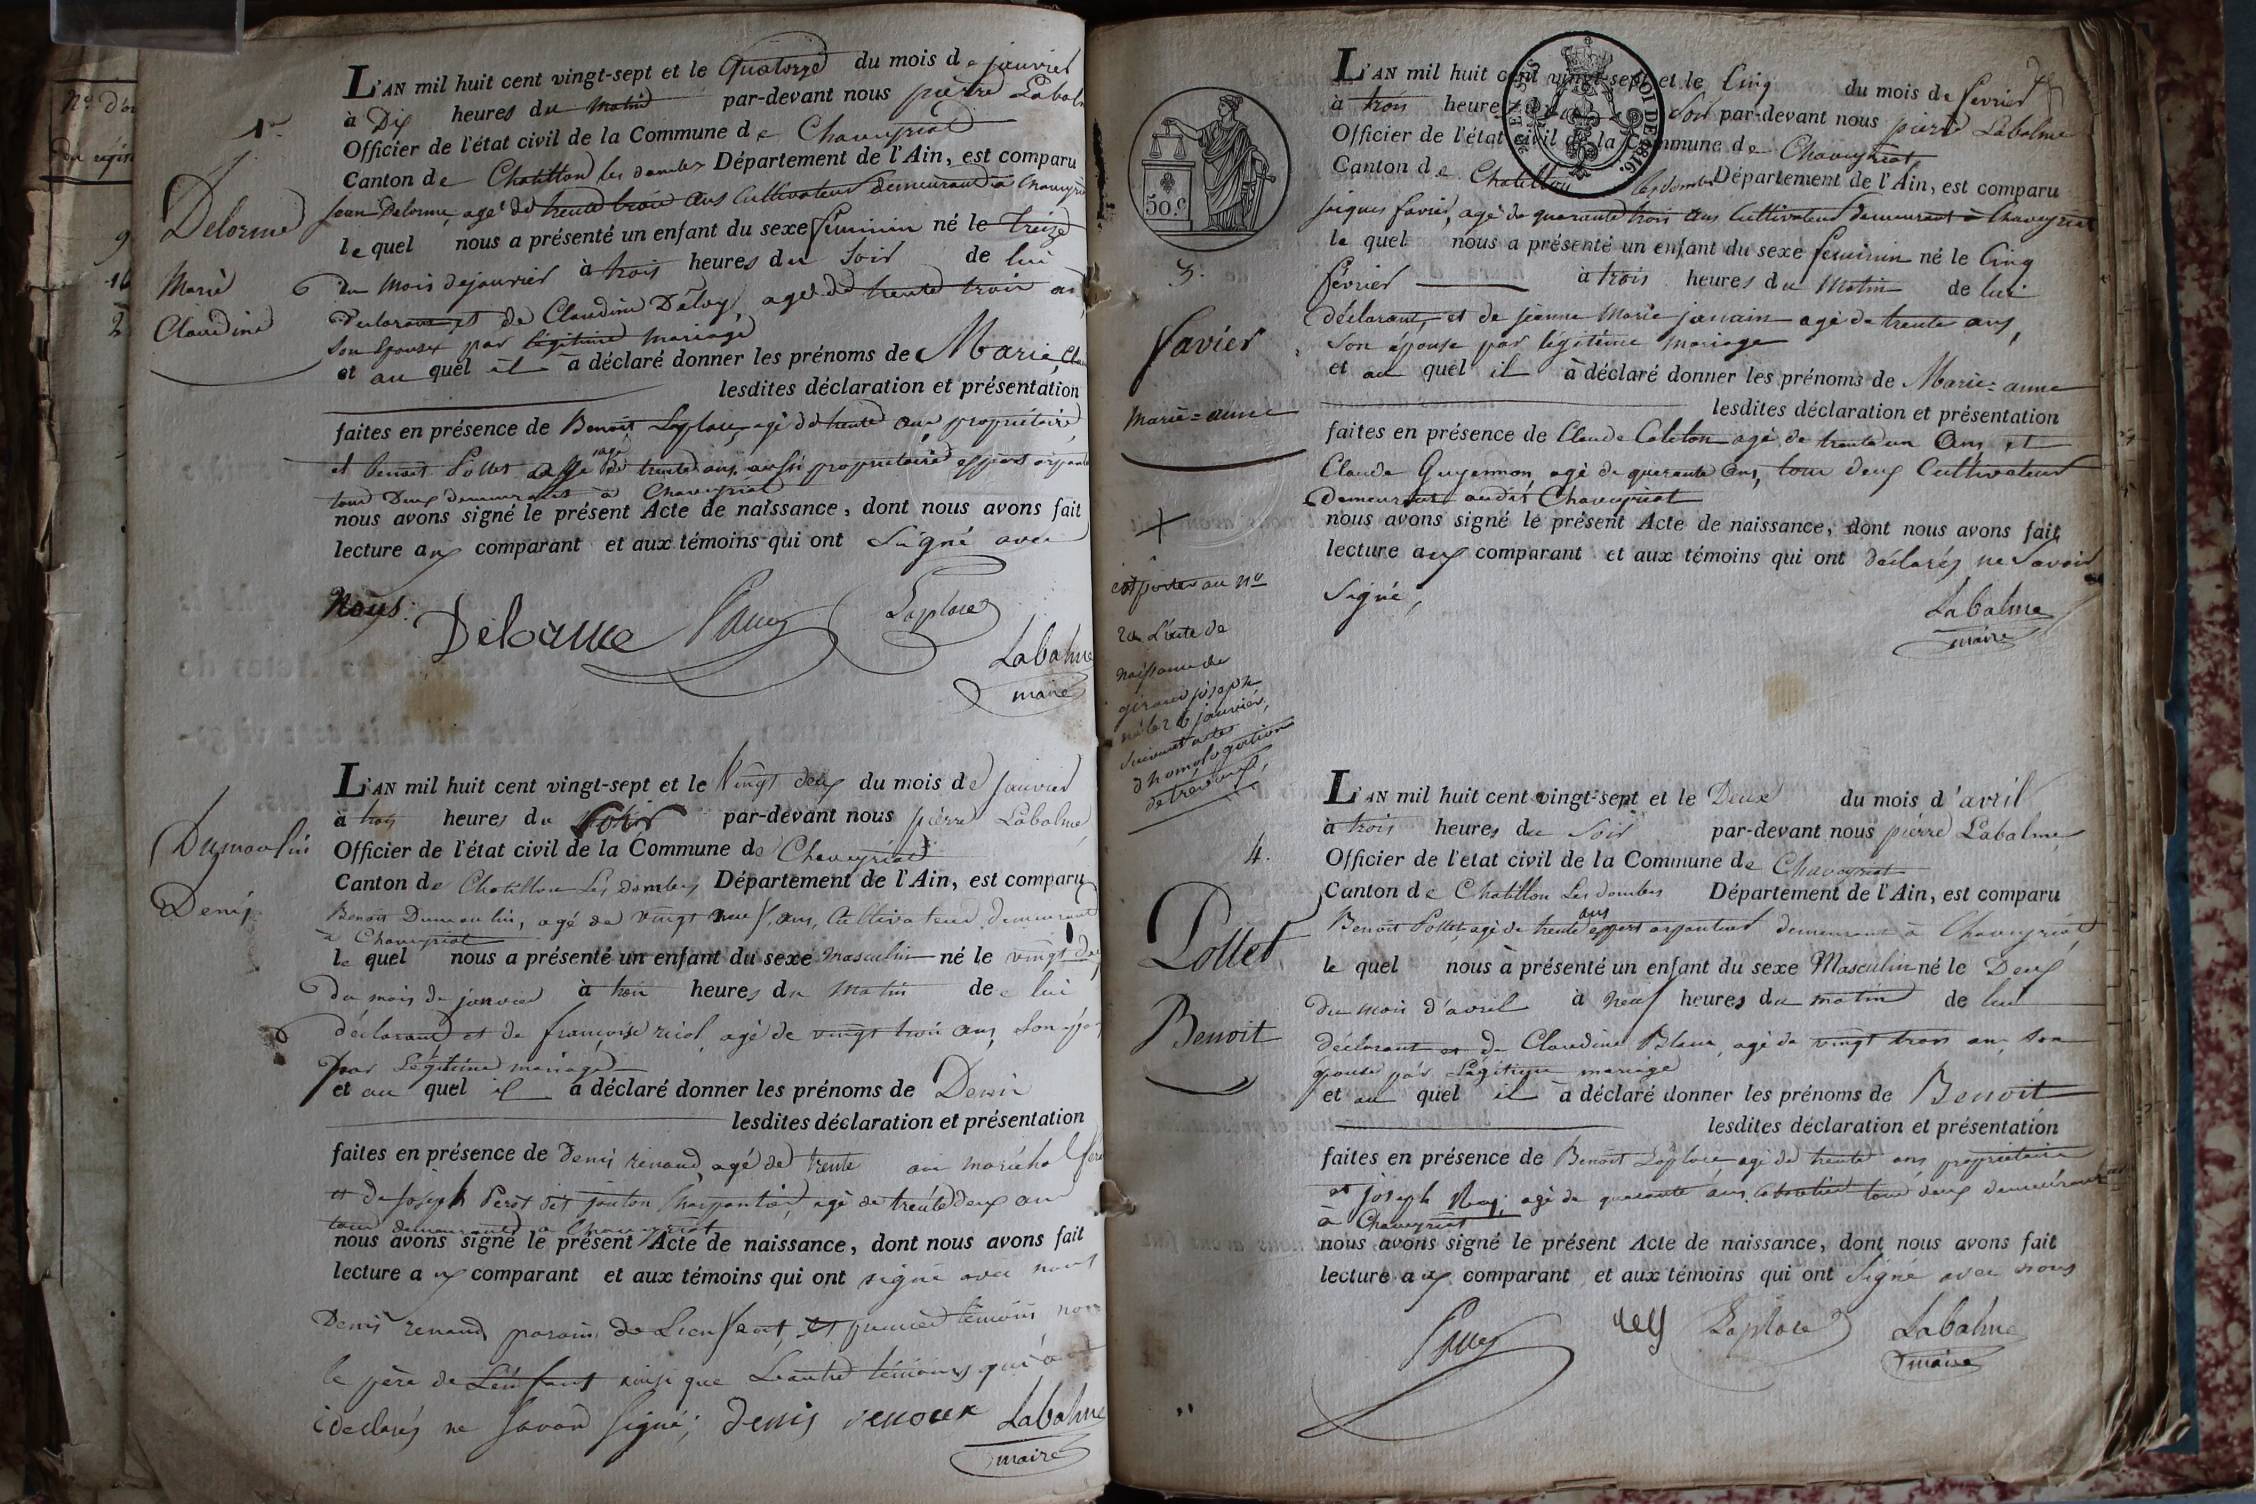 N.º d'or
du regis
9
16
2
1er
Delorme
Marie
Claudine
L'AN mil huit cent vingt-sept et le Quatorze du mois de janvier
à Dix heures du matin par-devant nous pierre Labalm
Officier de l'état civil de la Commune de Chaveyriat
Canton de Chatillon les dombes Département de l'Ain, est comparu
Jean Delorme, agé de trente trois ans Cultivateur demeurant à Chaveyria
le quel nous a présenté un enfant du sexe féminin né le treize
du mois de janvier à trois heures du soir de lui
declarant et de Claudine Deloy, agé de trente trois an
son épouse par légitime mariage
et au quel il a déclaré donner les prénoms de Marie, Clau
lesdites déclaration et présentation
faites en présence de Benoit Laplace, agé de trente ans propriétaire
et benoit Pollet agé de trente ans, aussi propriétaire expert arpente
tous Deux demeurants à Chaveyriat
nous avons signé le présent Acte de naissance, dont nous avons fait
lecture aux comparant et aux témoins qui ont Signé avec
Nous.
Delorme Laplace
Labalme
maire
Dumoulin
Denis
L'AN mil huit cent vingt-sept et le Vingt deux du mois de janvier
à trois heures du soir par-devant nous pierre Labalme
Officier de l'état civil de la Commune de Chaveyriat
Canton de Chatillon Les dombes Département de l'Ain, est comparu
Benoit Dumoulin, agé de vingt neuf ans, Cultivateur demeurant
à Chaveyriat
le quel nous a présenté un enfant du sexe masculin né le vingt deux
du mois de janvier à trois heures du matin de lui
déclarant et de françoise ricol, agé de vingt trois ans, son épou
par Légitime mariage
et au quel il a déclaré donner les prénoms de Denis
lesdites déclaration et présentation
faites en présence de Denis renaud, agé de trente ans maréchal fere
et de Joseph Perot dit jonton Charpantié, agé de trente deux ans
tous demeurants a Chaveyriat
nous avons signé le présent Acte de naissance, dont nous avons fait
lecture aux comparant et aux témoins qui ont signé avec nous
Denis renaud parain de L'enfant, et premier témoin non
le père de L'enfant ainsi que L'autre témoins qui ont
déclarés ne savoir signé; denis renoux Labalme
maire
50.c
3.
Favier
Marie=anne
est porter au no
20 L'acte de
naissance de
giraud joseph
né le 26 janvier,
suivant acte
d'homologation
de trévoux,
2R EN SUS
LOI DE 1816.
L'AN mil huit cent vingt-sept et le Cinq du mois de février
à trois heures du Soir par-devant nous pierre Labalme
Officier de l'état civil de la Commune de Chaveyriat
Canton de Chatillon les dombes Département de l'Ain, est comparu
jaques favier, agé de quarante trois ans Cultivateur demeurant à Chaveyriat
le quel nous a présenté un enfant du sexe féminin né le Cinq
février à trois heures du Matin de lui
déclarant, et de jeanne Marie janain agé de trente ans,
son épouse par légitime mariage
et au quel il à déclaré donner les prénoms de Marie=anne
lesdites déclaration et présentation
faites en présence de Claude Coleton agé de trente un Ans, et
Claude Guyennon, agé de quarante Ans, tous deux Cultivateur
Demeurant audit Chaveyriat
nous avons signé le présent Acte de naissance, dont nous avons fait
lecture aux comparant et aux témoins qui ont déclarés ne Savoir
Signé,
Labalme
maire
4.
Pollet
Benoit
L'AN mil huit cent vingt-sept et le Deux du mois d'avril
à trois heures du Soir par-devant nous pierre Labalme
Officier de l'etat civil de la Commune de Chaveyriat
Canton de Chatillon Les dombes Département de l'Ain, est comparu
Benoit Pollet, agé de trente ans expert arpenteur demeurant à Chaveyriat
le quel nous à présenté un enfant du sexe Masculin né le Deux
du mois d'avril à neuf heures du matin de lui
déclarant et de Claudine Blanc, agé de vingt trois ans, son
épouse par Légitime mariage
et au quel il à déclaré donner les prénoms de Benoit
lesdites déclaration et présentation
faites en présence de Benoit Laplace agé de trente ans propriétaire
et joseph Rey, agé de quarante ans, tous deux demeurant
à Chaveyriat
nous avons signé le présent Acte de naissance, dont nous avons fait
lecture aux comparant et aux témoins qui ont Signé avec nous
rey Laplace Labalme
maire